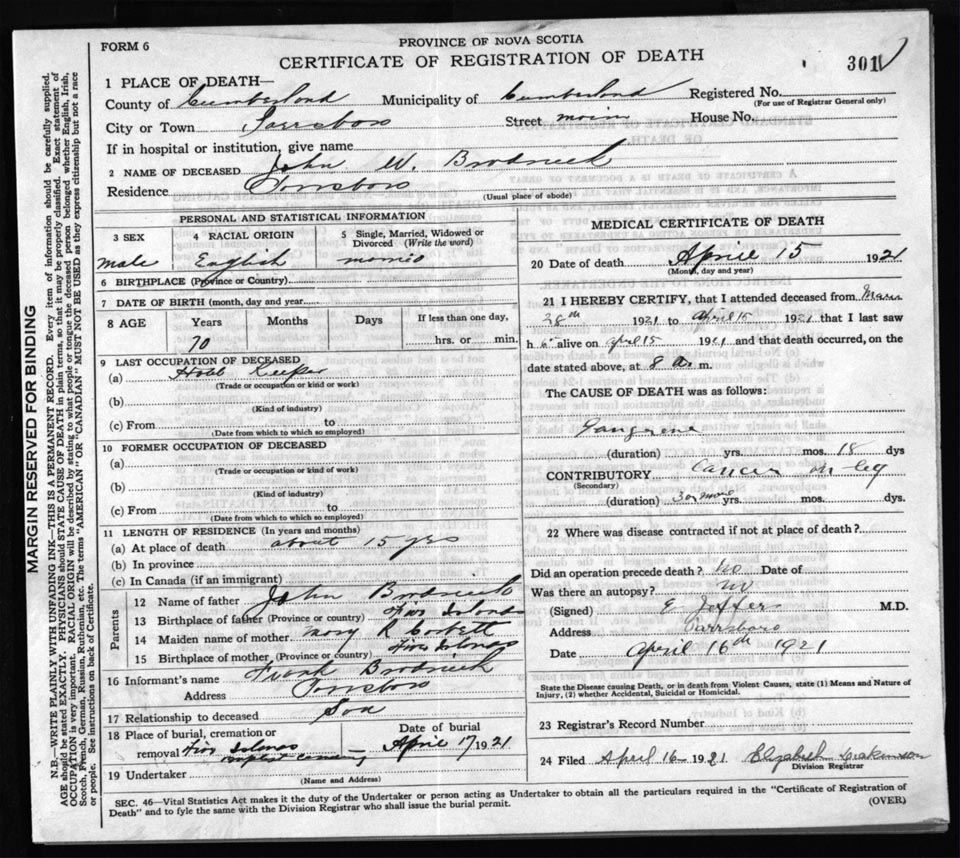 FORM 6
PROVINCE OF NOVA SCOTIA
CERTIFICATE OF REGISTRATION OF DEATH
301
1 PLACE OF DEATH—
County of Cumberland Municipality of Cumberland Registered No.
(For use of Registrar General only)
City or Town Parrsboro Street main House No.
If in hospital or institution, give name
2 NAME OF DECEASED John W. Brodrick
Residence Parrsboro
(Usual place of abode)
PERSONAL AND STATISTICAL INFORMATION
3 SEX 4 RACIAL ORIGIN 5 Single, Married, Widowed or Divorced (Write the word)
male English
6 BIRTHPLACE (Province or Country)
7 DATE OF BIRTH (month, day and year)
8 AGE Years Months Days If less than one day,
70 hrs. or min.
9 LAST OCCUPATION OF DECEASED
(a) Keeper
(Trade or occupation or kind or work)
(b)
(Kind of industry)
(c) From to
(Date from which to which so employed)
10 FORMER OCCUPATION OF DECEASED
(a)
(Trade or occupation or kind of work)
(b)
(Kind of industry)
(c) From to
(Date from which to which so employed)
11 LENGTH OF RESIDENCE (In years and months)
(a) At place of death about 15 yrs
(b) In province
(c) In Canada (if an immigrant)
Parents
12 Name of father John Brodrick
13 Birthplace of father (Province or country) Five Islands
14 Maiden name of mother Mary R Corbett
15 Birthplace of mother (Province or country) Five Islands
16 Informant's name Frank Brodrick
Address Parrsboro
17 Relationship to deceased Son
18 Place of burial, cremation or removal Five Islands Baptist Cemetery
Date of burial
April 17 1921
19 Undertaker
(Name and Address)
MEDICAL CERTIFICATE OF DEATH
20 Date of death April 15 1921
(Month, day and year)
21 I HEREBY CERTIFY, that I attended deceased from
28th 1921 to April 15 1921 that I last saw
h alive on April 15 1921 and that death occurred, on the
date stated above, at 8 a. m.
The CAUSE OF DEATH was as follows:
Gangrene
(duration) yrs. mos. 18 dys
CONTRIBUTORY Cancer on leg
(Secondary)
(duration) 3 or more yrs. mos. dys.
22 Where was disease contracted if not at place of death?
Did an operation precede death? No Date of
Was there an autopsy? No
(Signed) E Jeffers M.D.
Address Parrsboro
Date April 16th 1921
State the Disease causing Death, or in death from Violent Causes, state (1) Means and Nature of
Injury, (2) whether Accidental, Suicidal or Homicidal.
23 Registrar's Record Number
24 Filed April 16 1921 Elizabeth
Division Registrar
SEC. 46—Vital Statistics Act makes it the duty of the Undertaker or person acting as Undertaker to obtain all the particulars required in the "Certificate of Registration of
Death" and to fyle the same with the Division Registrar who shall issue the burial permit. (OVER)
MARGIN RESERVED FOR BINDING
N.B.—WRITE PLAINLY WITH UNFADING INK—THIS IS A PERMANENT RECORD. Every item of information should be carefully supplied.
AGE should be stated EXACTLY. PHYSICIANS should STATE CAUSE OF DEATH in plain terms, so that it may be properly classified. Exact statement of
OCCUPATION is very important. RACIAL ORIGIN will be described by stating to what people or tongue the deceased person belonged whether English, Irish,
Scotch, French, German, Russian, Ruthenian, etc. The terms "AMERICAN" OR "CANADIAN" MUST NOT BE USED as they express citizenship but not a race
or people. See instructions on back of Certificate.